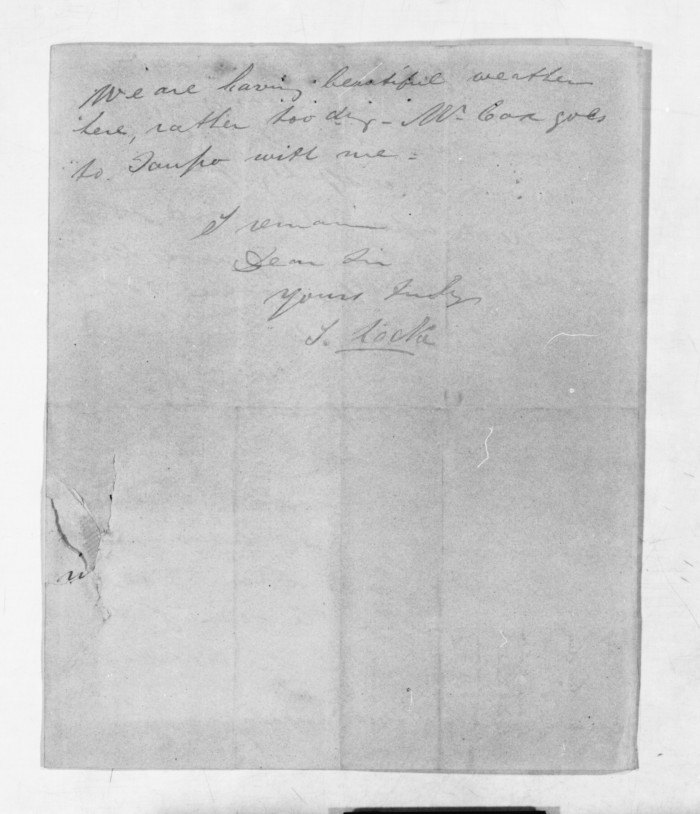 We are having beautiful weather
here, rather too dry - Mr. Cox goes
to Taupo with me =
I remain
Dear Sir
Yours truly
S. Locke